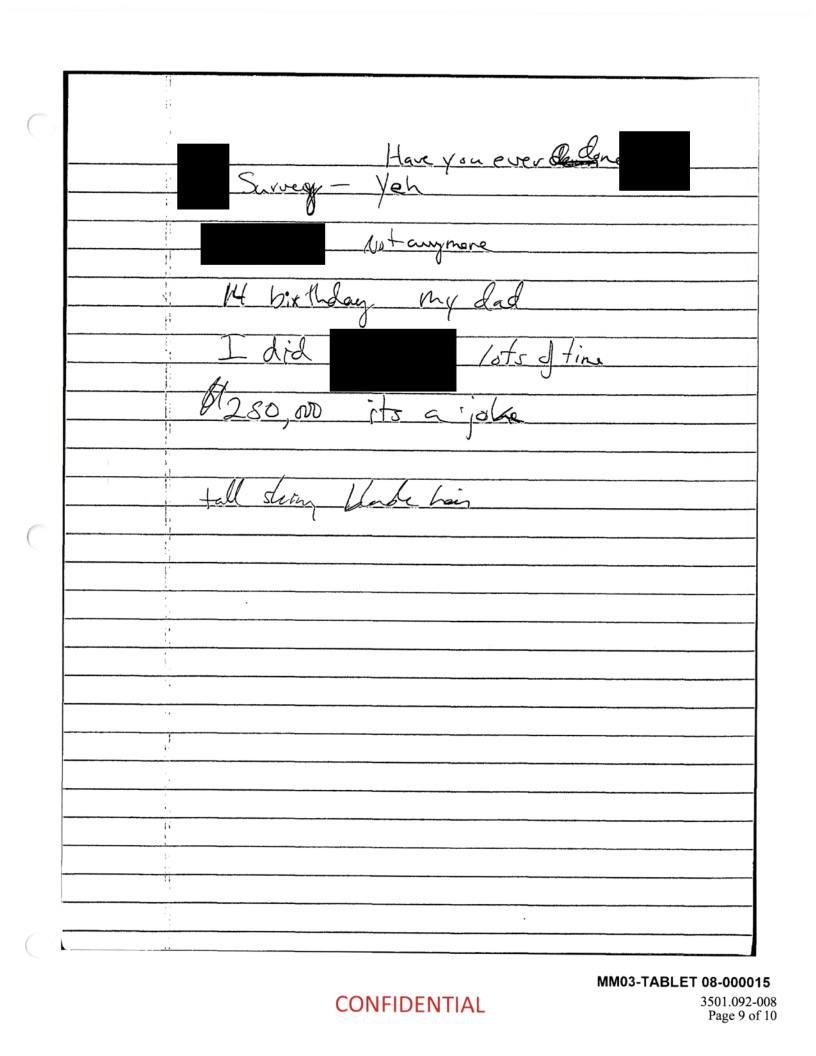 Have you ever done
Survey – Yeh
Not anymore
14 birthday my dad
I did lots of time
$280,000 its a joke
tall skinny blonde hair
MM03-TABLET 08-000015
CONFIDENTIAL
3501.092-008
Page 9 of 10